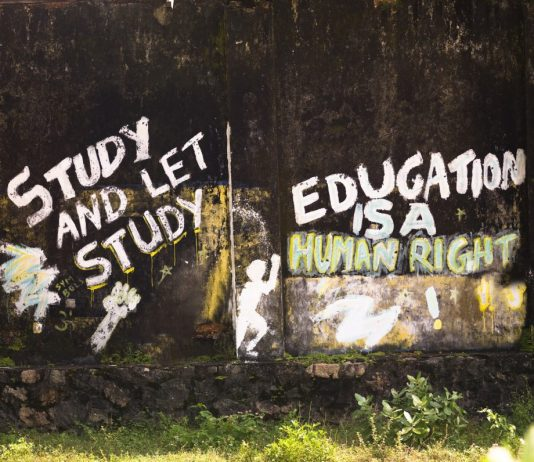 STUDY
AND LET
STUDY
EDUCATION
IS A
HUMAN RIGHT
!